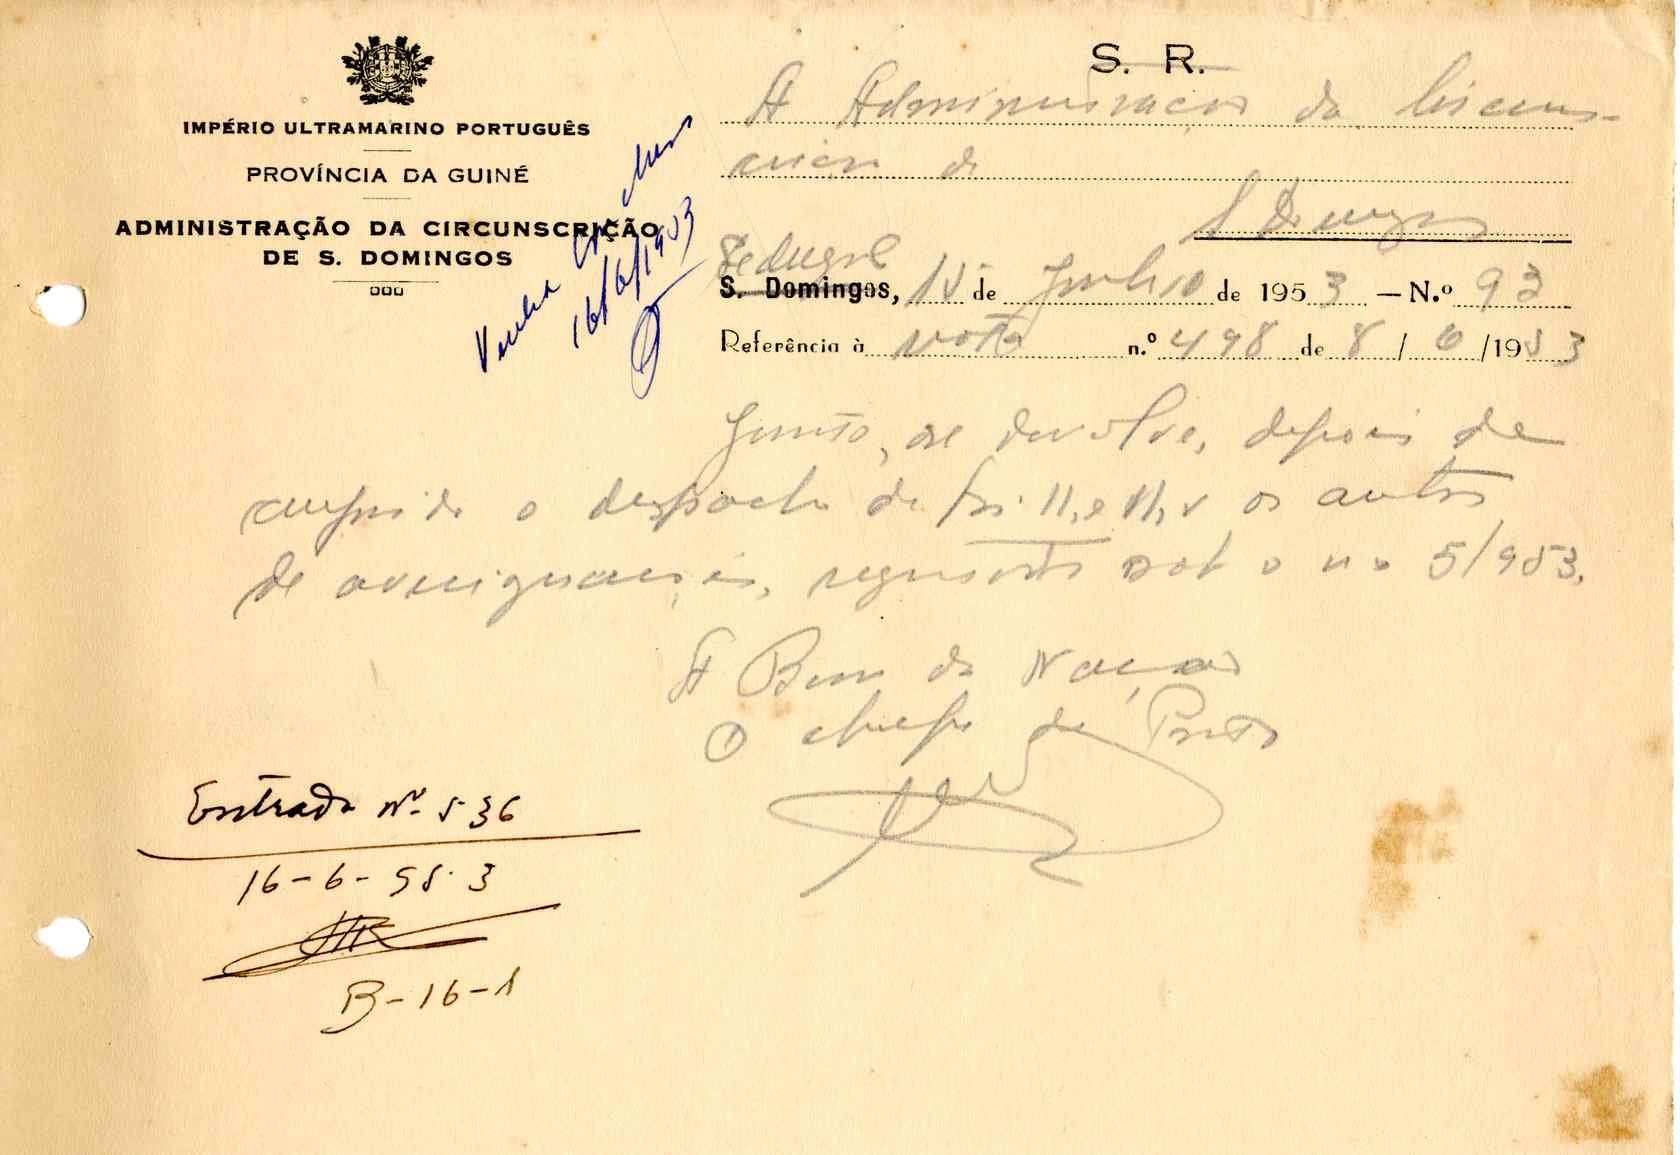 IMPÉRIO ULTRAMARINO PORTUGUÊS
PROVÍNCIA DA GUINÉ
ADMINISTRAÇÃO DA CIRCUNSCRIÇÃO
DE S. DOMINGOS
S. R.
A Administração da Circuns-
crição de
S. Domingos
Sedengal
S. Domingos, 15 de Junho de 1953 — N.º 93
Referência à nota n.º 498 de 8 / 6 / 1953
Venha com
16/6/1953
Junto, se devolve, depois de
cumprido o despacho de fls. 11, e 11, v os autos
de averiguações, registados sob o nº 5/953.
A Bem da Nação
O chefe de Posto
Entrada Nº 536
16-6-953
B-16-1